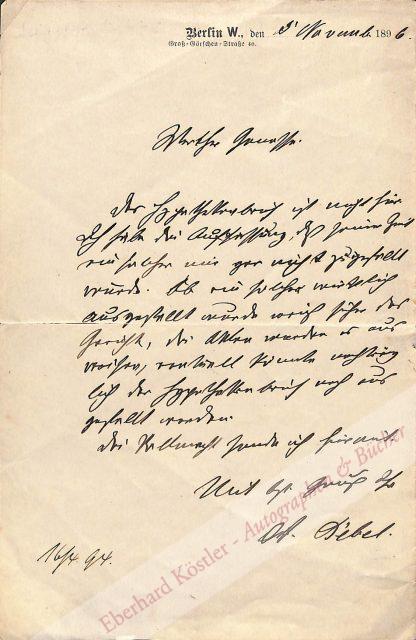 Berlin W., den 5 Novemb. 1896.
Groß-Görschen-Straße 40.
Werther Genosse.
Der Hypothekenbrief ist nicht hier
Ich habe die Auffassung, daß seiner Zeit
ein solcher mir gar nicht zugestellt
wurde. Ob ein solcher wirklich
ausgestellt wurde weiß sicher das
Gericht, die Akten werden es aus
weisen, eventuell könnte nachträg
lich der Hypothekenbrief noch aus
gestellt werden.
Die Vollmacht sende ich hier
Mit Gruß Ihr
A. Bebel.
94.
Eberhard Köstler - Autographen & Bücher